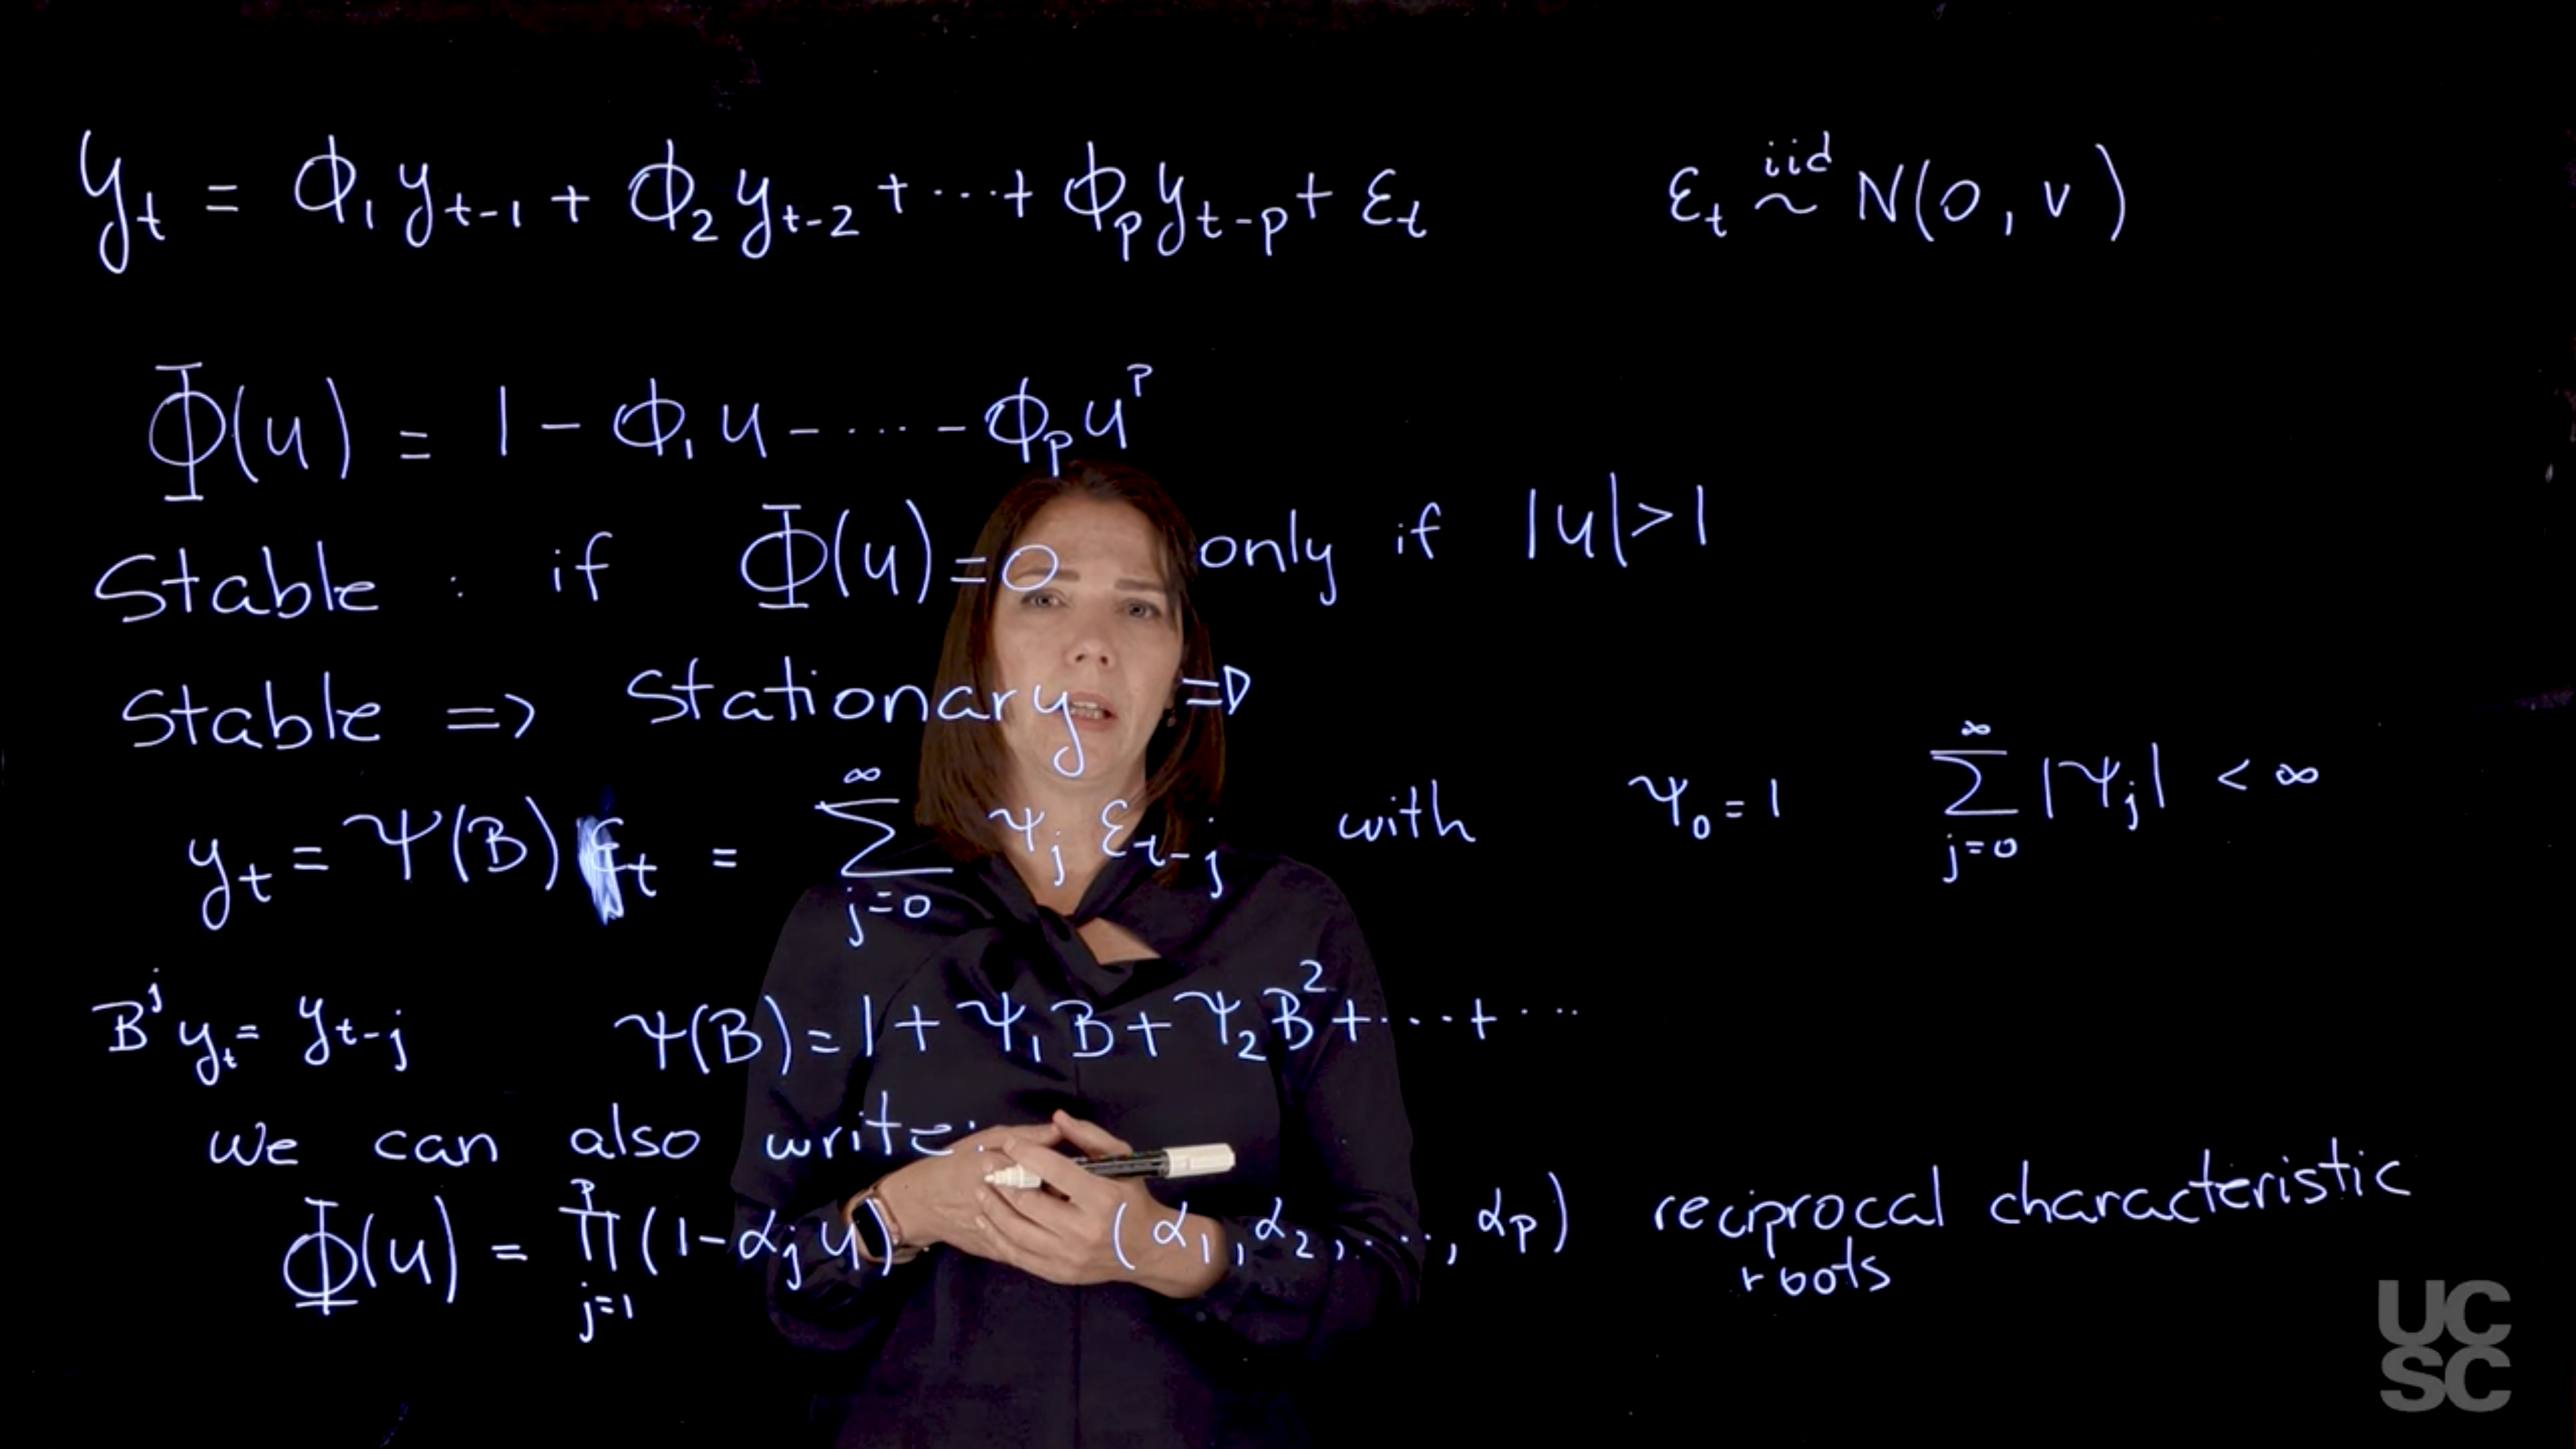 yₜ = ϕ₁ yₜ₋₁ + ϕ₂ yₜ₋₂ + ··· + ϕₚ yₜ₋ₚ + εₜ    εₜ ~ⁱⁱᵈ N(0, v)
Φ(u) = 1 - ϕ₁ u - ···· - ϕₚ uᵖ
Stable : if Φ(u) = 0 only if |u| > 1
Stable => Stationary =>
yₜ = Ψ(B) εₜ = ∑_{j=0}^{∞} ψⱼ εₜ₋ⱼ with ψ₀ = 1    ∑_{j=0}^{∞} |ψⱼ| < ∞
Bʲ yₜ = yₜ₋ⱼ    ψ(B) = 1 + ψ₁ B + ψ₂ B² + ··· + ···
we can also write:
Φ(u) = ∏_{j=1}^{p} (1 - αⱼ u)    (α₁, α₂, ...., αₚ) reciprocal characteristic
roots
UC
SC